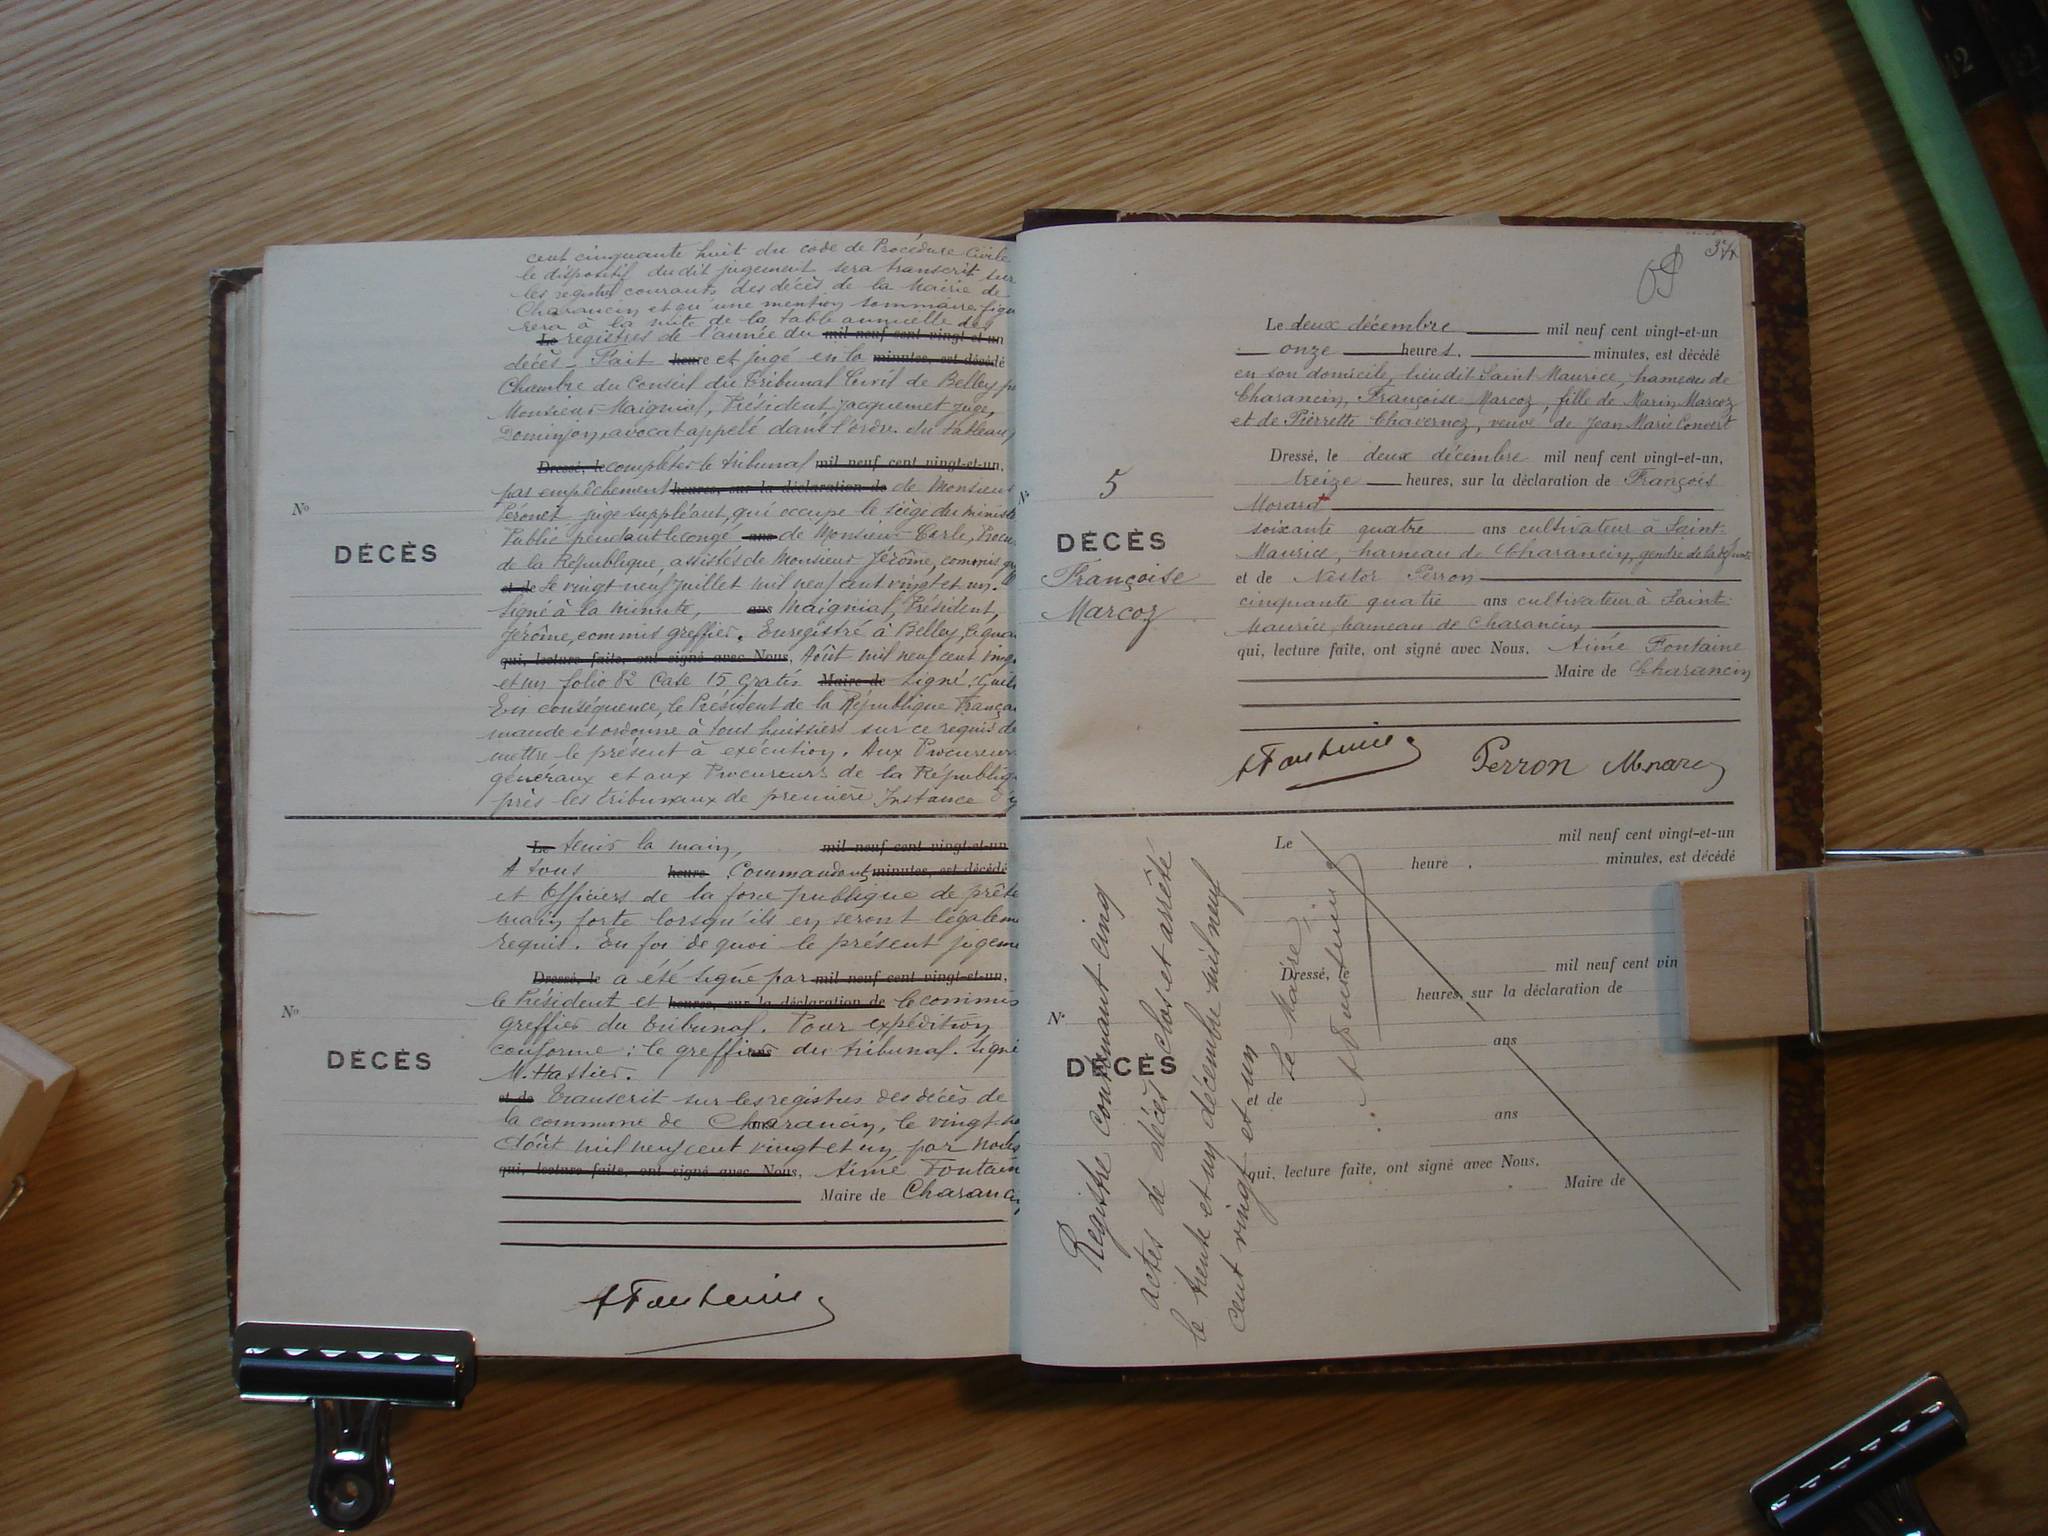 cent cinquante huit du code de Procédure Civile
le dispositif dudit jugement sera transcrit sur
les registres courants des décès de la Mairie de
Charancin et qu'une mention sommaire figu
rera à la suite de la table annuelle des
Le registres de l'année du mil neuf cent vingt et un
décès. Fait heure et jugé en la minutes, est décédé
Chambre du Conseil du Tribunal Civil de Belley, p
Monsieur Maignial, Président, Jacquemet juge,
Dominjon, avocat appelé dans l'ordre du tableau,
Dressé, le compléter le tribunal mil neuf cent vingt-et-un,
par empêchement heures, sur la déclaration de de Monsieur
Péronet juge suppléant, qui occupe le siège du ministè
Nº
Public pendant le congé ans de Monsieur Carle, Procu
DÉCÈS
de la République, assistés de Monsieur Jérôme, commis gr
et de Le vingt neuf Juillet mil neuf cent vingt et un.
Signé à la minute, ans Maignial, Président,
Jérôme, commis greffier. Enregistré à Belley, le qua
qui, lecture faite, ont signé avec Nous, Août mil neuf cent ving
et un folio 82 Case 15 Gratis Maire de Signé:
En conséquence, le Président de la République França
mande et ordonne à tous huissiers sur ce requis de
mettre le présent à exécution. Aux Procureurs
généraux et aux Procureurs de la Républiq
près les tribunaux de première Instance d'y
Le tenir la main, mil neuf cent vingt-et-un
A tous heure Commandants minutes, est décédé
et Officiers de la force publique de prête
main forte lorsqu'ils en seront légalem
requis. En foi de quoi le présent jugeme
Dressé, le a été signé par mil neuf cent vingt-et-un,
le Président et heures, sur la déclaration de le commis
greffier du Tribunal. Pour expédition
Nº
conforme: le greffier ans du tribunal. Signé
DÉCÈS
M. Hastier.
et de Transcrit sur les registres des décès de
la commune de Charancin, le vingt-
Août mil neuf cent vingt et un, par Nous
qui, lecture faite, ont signé avec Nous, Aimé Fontain
Maire de Charanci
AFontaine
34
Le deux décembre mil neuf cent vingt-et-un
onze heures, minutes, est décédé
en son domicile, lieu dit Saint Maurice, hameau de
Charancin, Françoise Marcoz, fille de Marin Marcoz
et de Pierrette Chavernoz, veuve de Jean Marie Convert
Dressé, le deux décembre mil neuf cent vingt-et-un,
treize heures, sur la déclaration de François
Nº 5
Morard
DÉCÈS
Françoise
Marcoz
soixante quatre ans cultivateur à Saint-
Maurice, hameau de Charancin, gendre de la défunte
et de Nestor Perron
cinquante quatre ans cultivateur à Saint-
Maurice, hameau de Charancin
qui, lecture faite, ont signé avec Nous, Aimé Fontaine
Maire de Charancin
AFontaine Perron
Le mil neuf cent vingt-et-un
heure minutes, est décédé
Dressé, mil neuf cent vin
heures, sur la déclaration de
Nº
DÉCÈS
ans
et de
ans
qui, lecture faite, ont signé avec Nous,
Maire de
Registre contenant cinq
actes de décès, clos et arrêté
le trente et un décembre mil neuf
cent vingt et un
Le Maire,
AFontaine